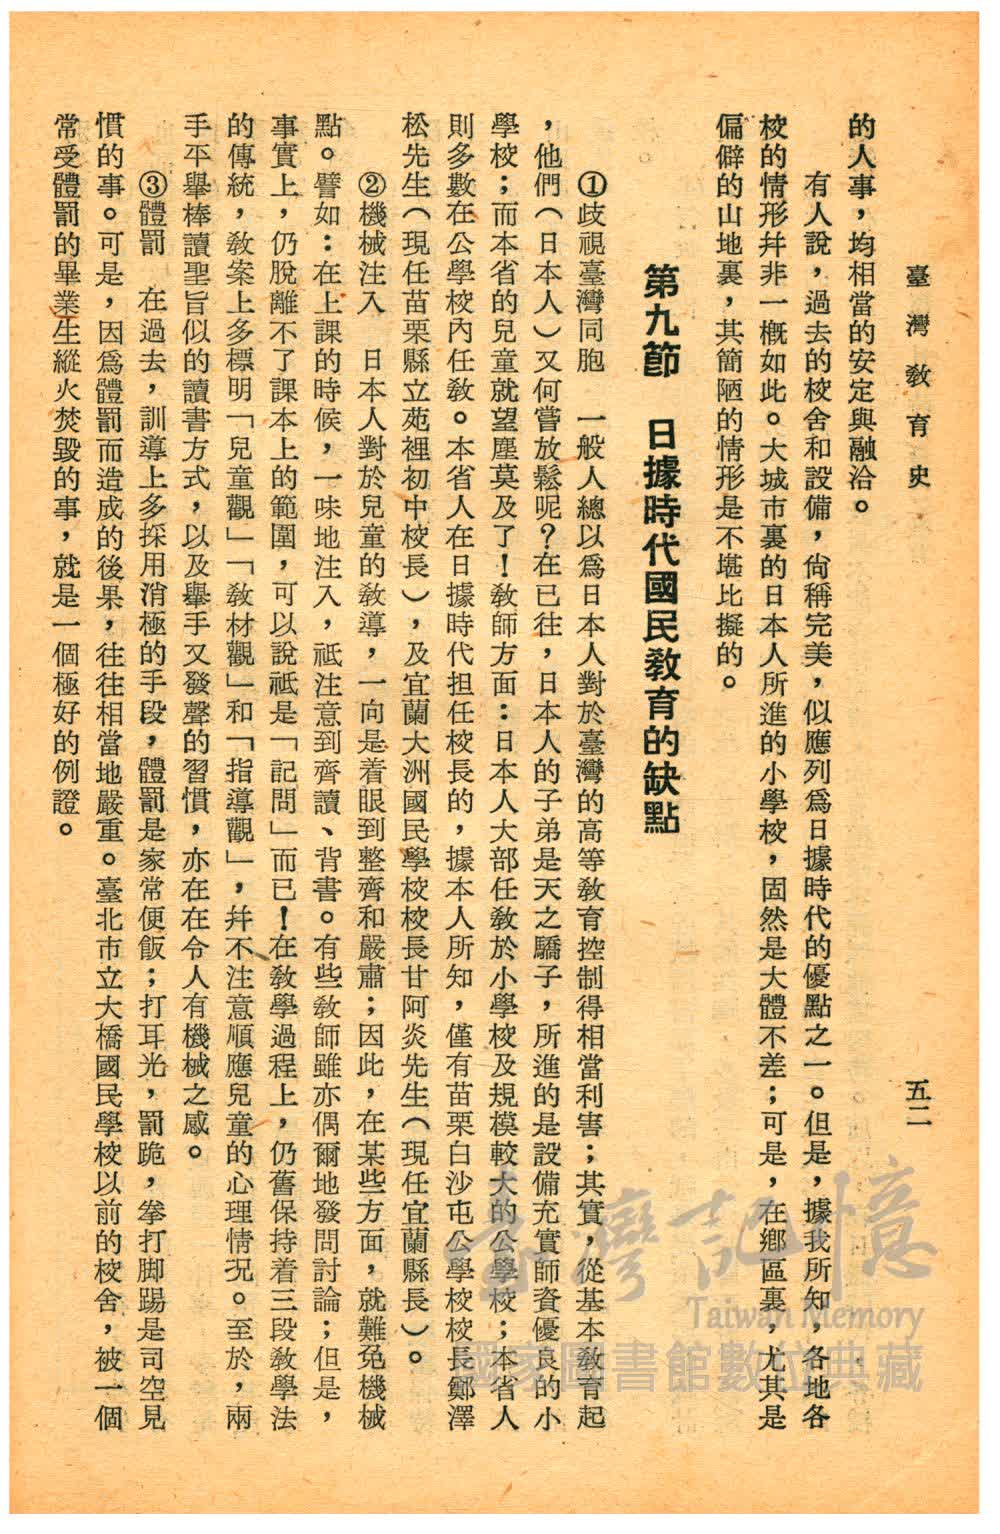 臺灣教育史
五二
的人事，均相當的安定與融洽。
有人說，過去的校舍和設備，尙稱完美，似應列爲日據時代的優點之一。但是，據我所知，各地各
校的情形幷非一槪如此。大城市裏的日本人所進的小學校，固然是大體不差；可是，在鄕區裏，尤其是
偏僻的山地裏，其簡陋的情形是不堪比擬的。
第九節　日據時代國民敎育的缺點
①歧視臺灣同胞　一般人總以爲日本人對於臺灣的高等敎育控制得相當利害；其實，從基本敎育起
，他們（日本人）又何嘗放鬆呢？在已往，日本人的子弟是天之驕子，所進的是設備充實師資優良的小
學校；而本省的兒童就望塵莫及了！敎師方面：日本人大部任敎於小學校及規模較大的公學校；本省人
則多數在公學校內任敎。本省人在日據時代担任校長的，據本人所知，僅有苗栗白沙屯公學校校長鄭澤
松先生（現任苗栗縣立苑裡初中校長），及宜蘭大洲國民學校校長甘阿炎先生（現任宜蘭縣長）。
②機械注入　日本人對於兒童的敎導，一向是着眼到整齊和嚴肅；因此，在某些方面，就難免機械
點。譬如：在上課的時候，一味地注入，祗注意到齊讀、背書。有些敎師雖亦偶爾地發問討論；但是，
事實上，仍脫離不了課本上的範圍，可以說祗是「記問」而已！在敎學過程上，仍舊保持着三段敎學法
的傳統，敎案上多標明「兒童觀」「敎材觀」和「指導觀」，幷不注意順應兒童的心理情況。至於，兩
手平舉捧讀聖旨似的讀書方式，以及舉手又發聲的習慣，亦在在令人有機械之感。
③體罰　在過去，訓導上多採用消極的手段，體罰是家常便飯；打耳光，罰跪，拳打脚踢是司空見
慣的事。可是，因爲體罰而造成的後果，往往相當地嚴重。臺北市立大橋國民學校以前的校舍，被一個
常受體罰的畢業生縱火焚毀的事，就是一個極好的例證。
臺灣記憶
Taiwan Memory
國家圖書館數位典藏